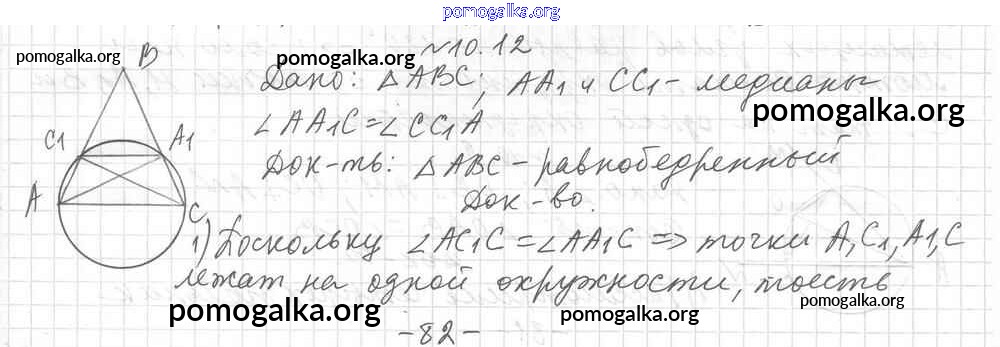 pomogalka.org
№10.12
pomogalka.org
pomogalka.org
B
Дано: △ABC; AA1 и CC1 - медианы
pomogalka.org
∠AA1C=∠CC1A
C1
A1
Док-ть: △ABC - равнобедренный
Док-во.
A
C
1) Поскольку ∠AC1C=∠AA1C => точки A,C1,A1,C
лежат на одной окружности, тоесть
pomogalka.org
pomogalka.org
pomogalka.org
-82-